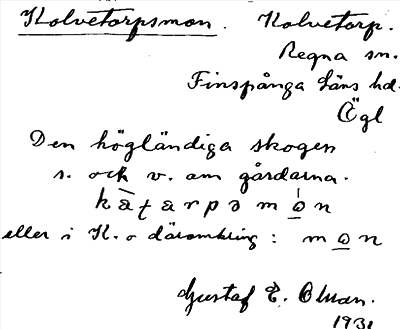 Kolvetorpsmon. Kolvetorp.
Regna sn.
Finspånga läns hd.
Ögl
Den högländiga skogen
s. och v. om gårdarna.
eller i K. o däromkring: mɷn
Gustaf E. Olman.
1931